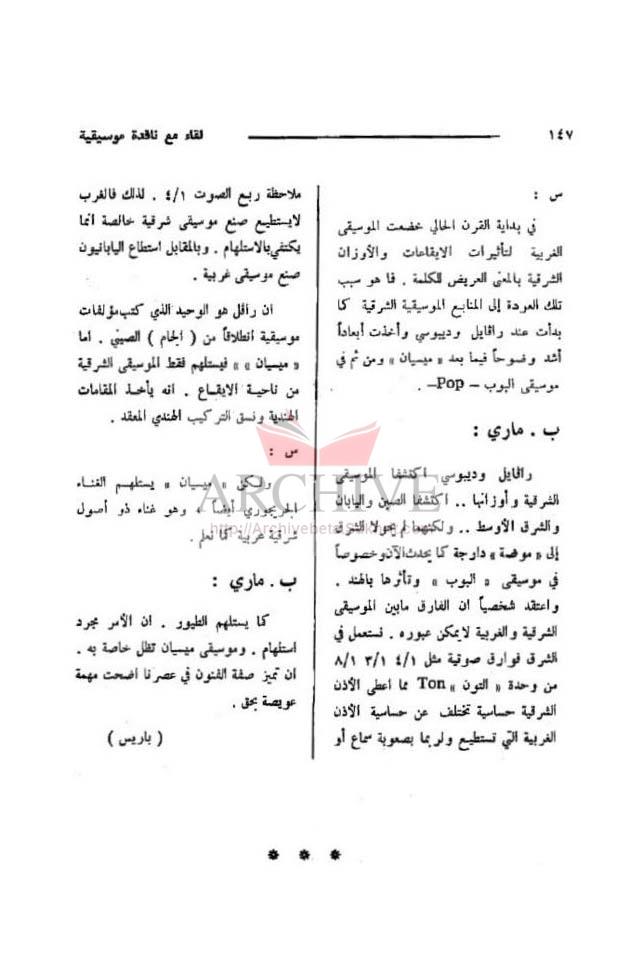 ١٤٧ لقاء مع ناقدة موسيقية
س :
في بداية القرن الحالي خضعت الموسيقى
الغربية لتأثيرات الايقاعات والأوزان
الشرقية بالمعنى العريض للكلمة . فما هو سبب
تلك العودة إلى المنابع الموسيقية الشرقية كما
بدأت عند رافايل وديبوسي وأخذت أبعاداً
أشد وضوحاً فيما بعد « ميسيان » ومن ثم في
موسيقى البوب – Pop – .
ب . ماري :
رافايل وديبوسي اكتشفا الموسيقى
الشرقية وأوزانها .. اكتشفا الصين واليابان
والشرق الأوسط .. ولكنهما لم يحولا الشرق
إلى « موضة » دارجة كما يحدث الآن وخصوصاً
في موسيقى « البوب » وتأثرها بالهند .
واعتقد شخصياً ان الفارق مابين الموسيقى
الشرقية والغربية لايمكن عبوره . نستعمل في
الشرق فوارق صوتية مثل ٤/١ ٣/١ ٨/١
من وحدة « التون » Ton مما أعطى الأذن
الشرقية حساسية تختلف عن حساسية الأذن
الغربية التي تستطيع ولربما بصعوبة سماع أو
ملاحظة ربع الصوت ٤/١ . لذلك فالغرب
لايستطيع صنع موسيقى شرقية خالصة انما
يكتفي بالاستلهام . وبالمقابل استطاع اليابانيون
صنع موسيقى غربية .
ان رافل هو الوحيد الذي كتب مؤلفات
موسيقية انطلاقاً من ( الجام ) الصيني . اما
« ميسيان » فيستلهم فقط الموسيقى الشرقية
من ناحية الايقاع . انه يأخذ المقامات
الهندية ونسق التركيب الهندي المعقد .
س :
ولكن « ميسيان » يستلهم الغناء
الجريجوري أيضاً ، وهو غناء ذو أصول
شرقية عربية كما نعلم .
ب . ماري :
كما يستلهم الطيور . ان الأمر مجرد
استلهام . وموسيقى ميسيان تظل خاصة به .
ان تميز صفة الفنون في عصرنا اضحت مهمة
عويصة بحق .
( باريس )
* * *
ARCHIVE
http://Archivebeta.Sakhrit.com